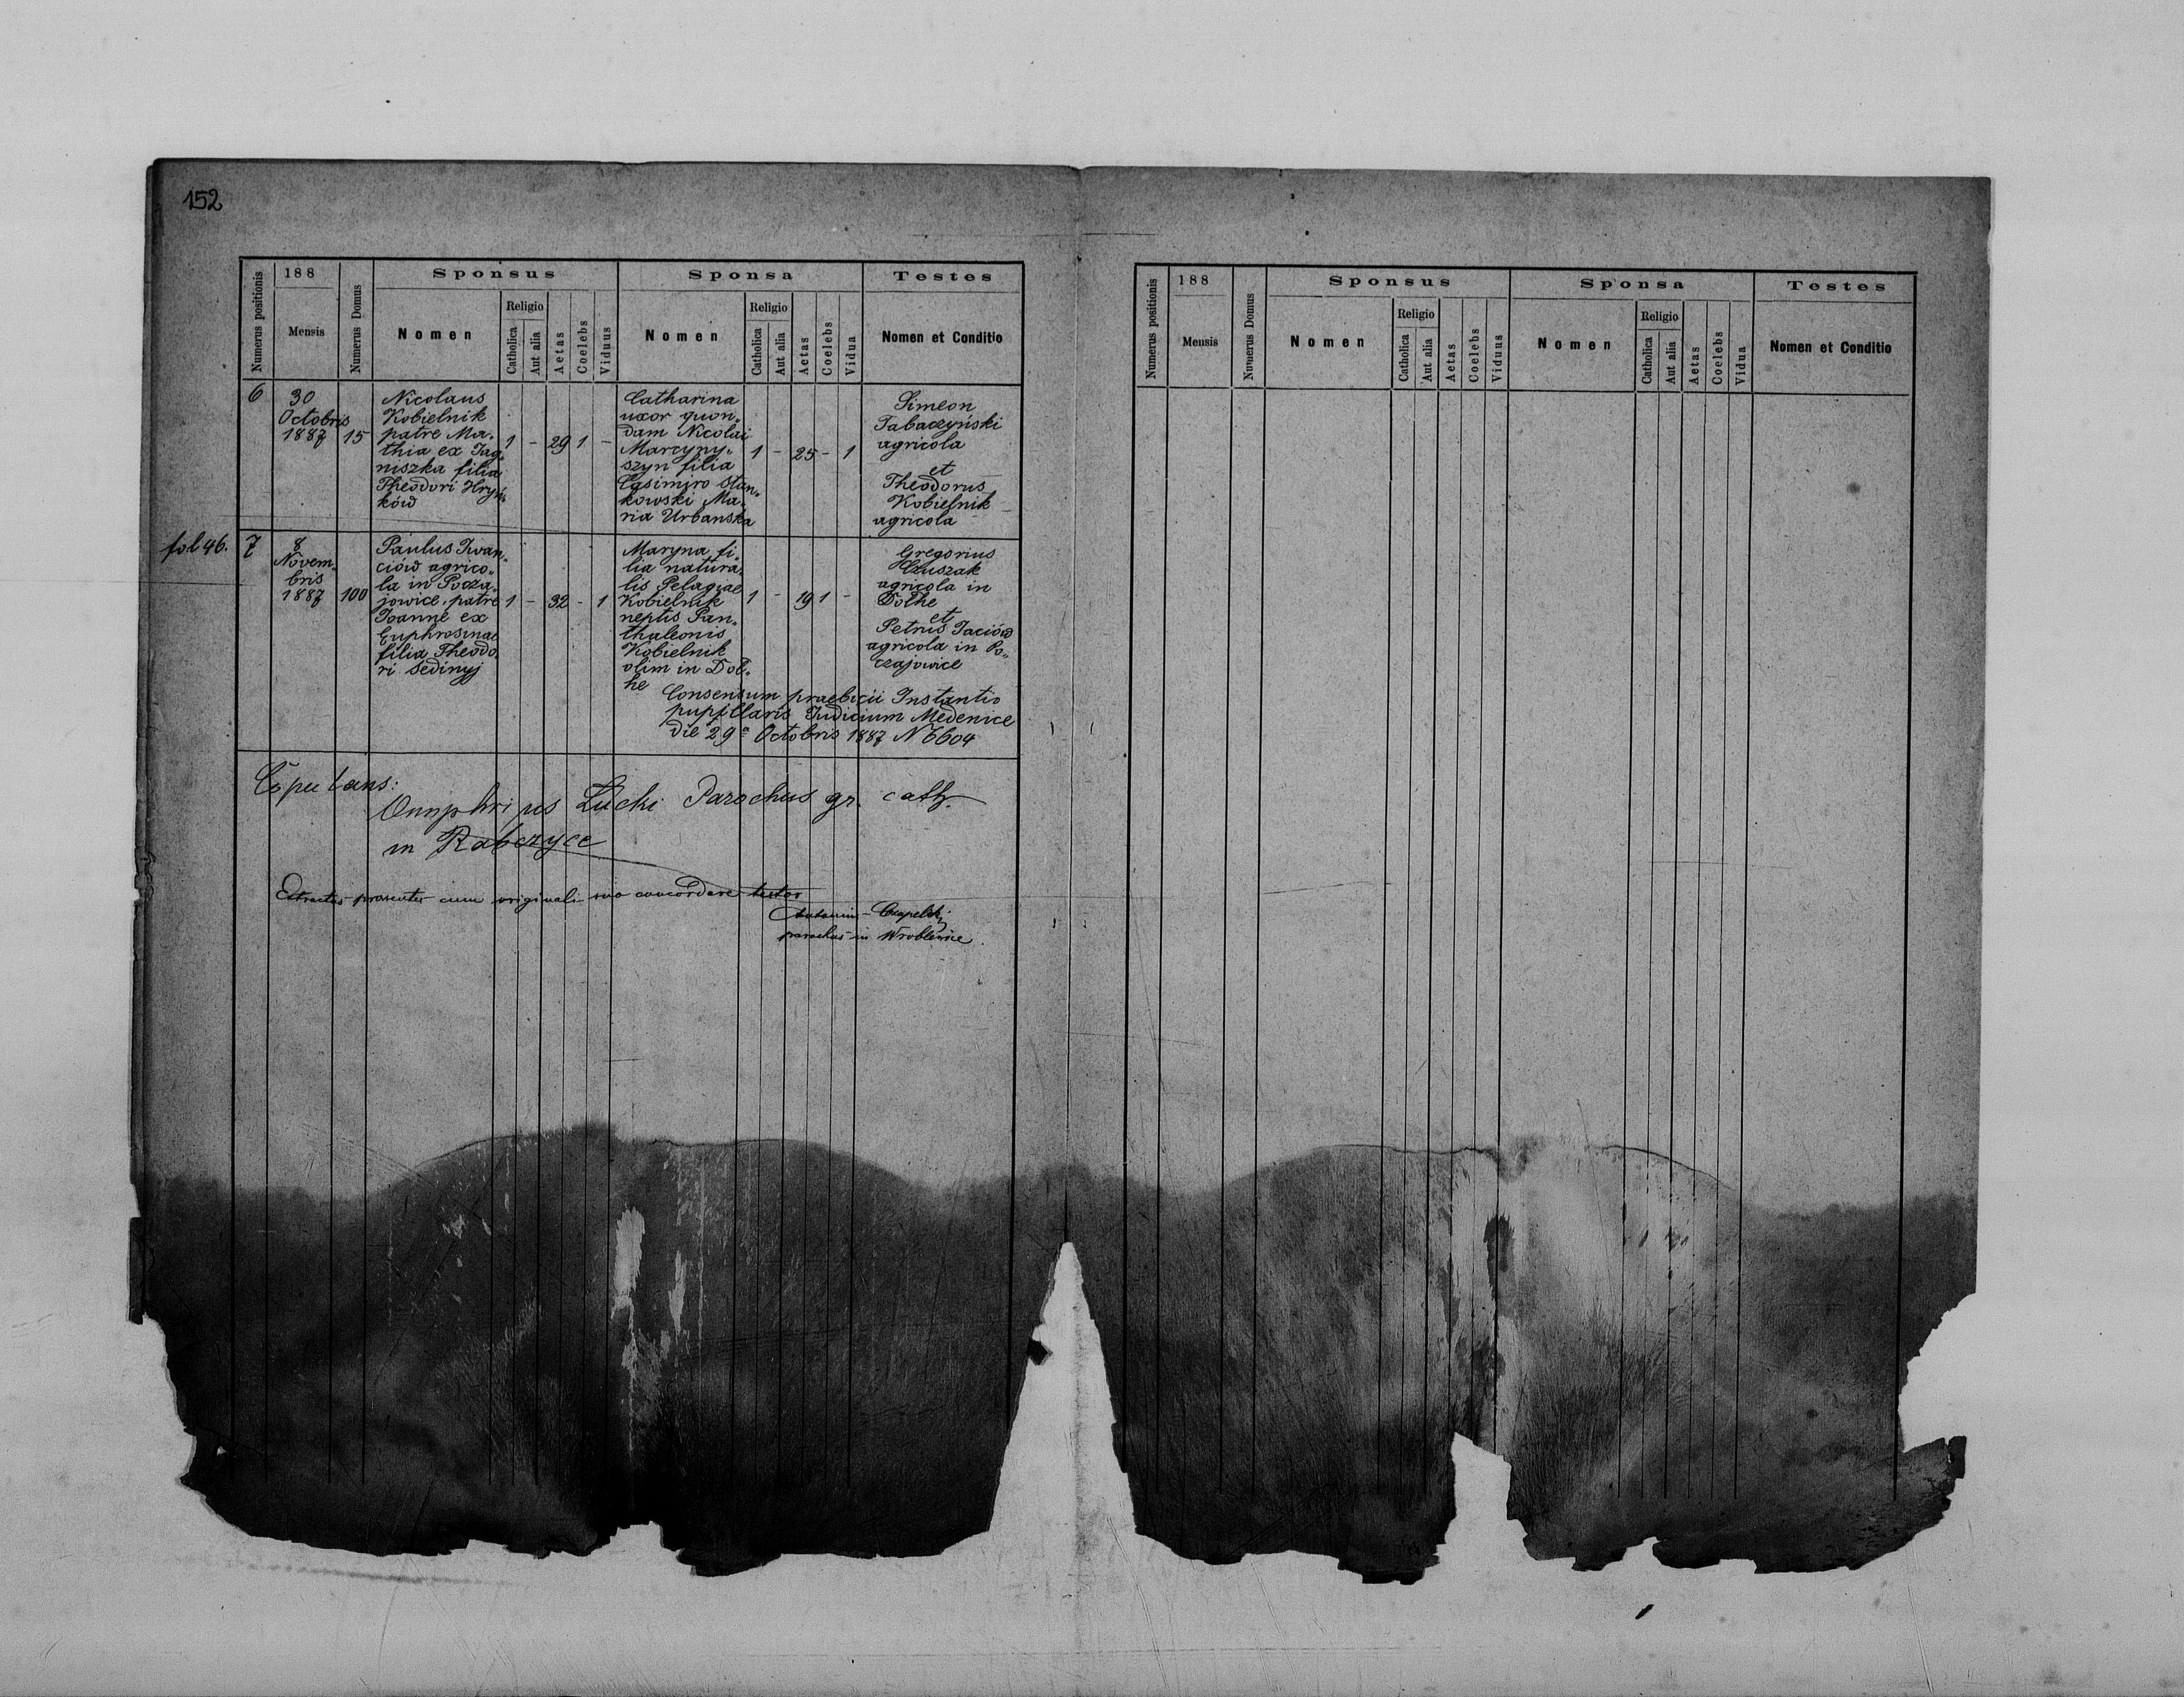 152
Numerus positionis
188
Mensis
Numerus Domus
Sponsus
Nomen
Religio
Catholica
Aut alia
Aetas
Coelebs
Viduus
Sponsa
Nomen
Religio
Catholica
Aut alia
Aetas
Coelebs
Vidua
Testes
Nomen et Conditio
6
30
Octobris
1887
15
Nicolaus
Kobielnik
patre Ma„
thia ex Jag„
niszka filia
Theodori Hryń„
ków
1 - 29 1 -
Catharina
uxor quon„
dam Nicolai
Marcyny„
szyn filia
Casimiro Stan„
kowski Ma„
ria Urbanska
1 - 25 - 1
Simeon
Tabaczyński
agricola
et
Theodorus
Kobielnik
agricola
fol 46.
7
8
Novem„
bris
1887
100
Paulus Iwan„
ciów agrico„
la in Pocza„
jowice, patre
Joanne ex
Euphrosinae
filia Theodo„
ri Sedinyj
1 - 32 - 1
Maryna fi„
lia natura„
lis Pelagiae
Kobielnik
neptis Pan„
thaleonis
Kobielnik
olim in Dol„
he
1 - 19 1 -
Gregorius
agricola in
Dolhe
et
Petrus Jaciów
agricola in Po„
czajowice
Consensum praebicii Instantio
pupillaris Judicium Medenice
die 29a Octobris 1887 N 6604
Copulans:
Onuphrius Lucki Parochus gr. cath.
in Rabczyce
cum originali suo concordare testor
Antonius Czapelski
parochus in Wroblewice.
Numerus positionis
188
Mensis
Numerus Domus
Sponsus
Nomen
Religio
Catholica
Aut alia
Aetas
Coelebs
Viduus
Sponsa
Nomen
Religio
Catholica
Aut alia
Aetas
Coelebs
Vidua
Testes
Nomen et Conditio